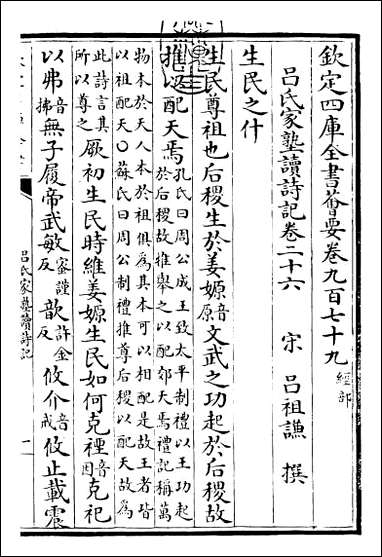 欽定四庫全書薈要卷九百七十九經部
呂氏家塾讀詩記卷二十六　宋　呂祖謙　撰
生民之什
生民尊祖也后稷生於姜嫄音原文武之功起於后稷故
推以配天焉孔氏曰周公成王致太平制禮以王功起
於后稷故推舉之以配郊天焉禮記稱萬
物本於天人本於祖俱為其本可以相配是故王者皆
以祖配天○蘇氏曰周公制禮推尊后稷以配天故為
此詩言其
所以尊之厥初生民時維姜嫄生民如何克禋音因克祀
以弗音拂無子履帝武敏密謹反歆許金反攸介音戒攸止載震
呂氏家塾讀詩記
一